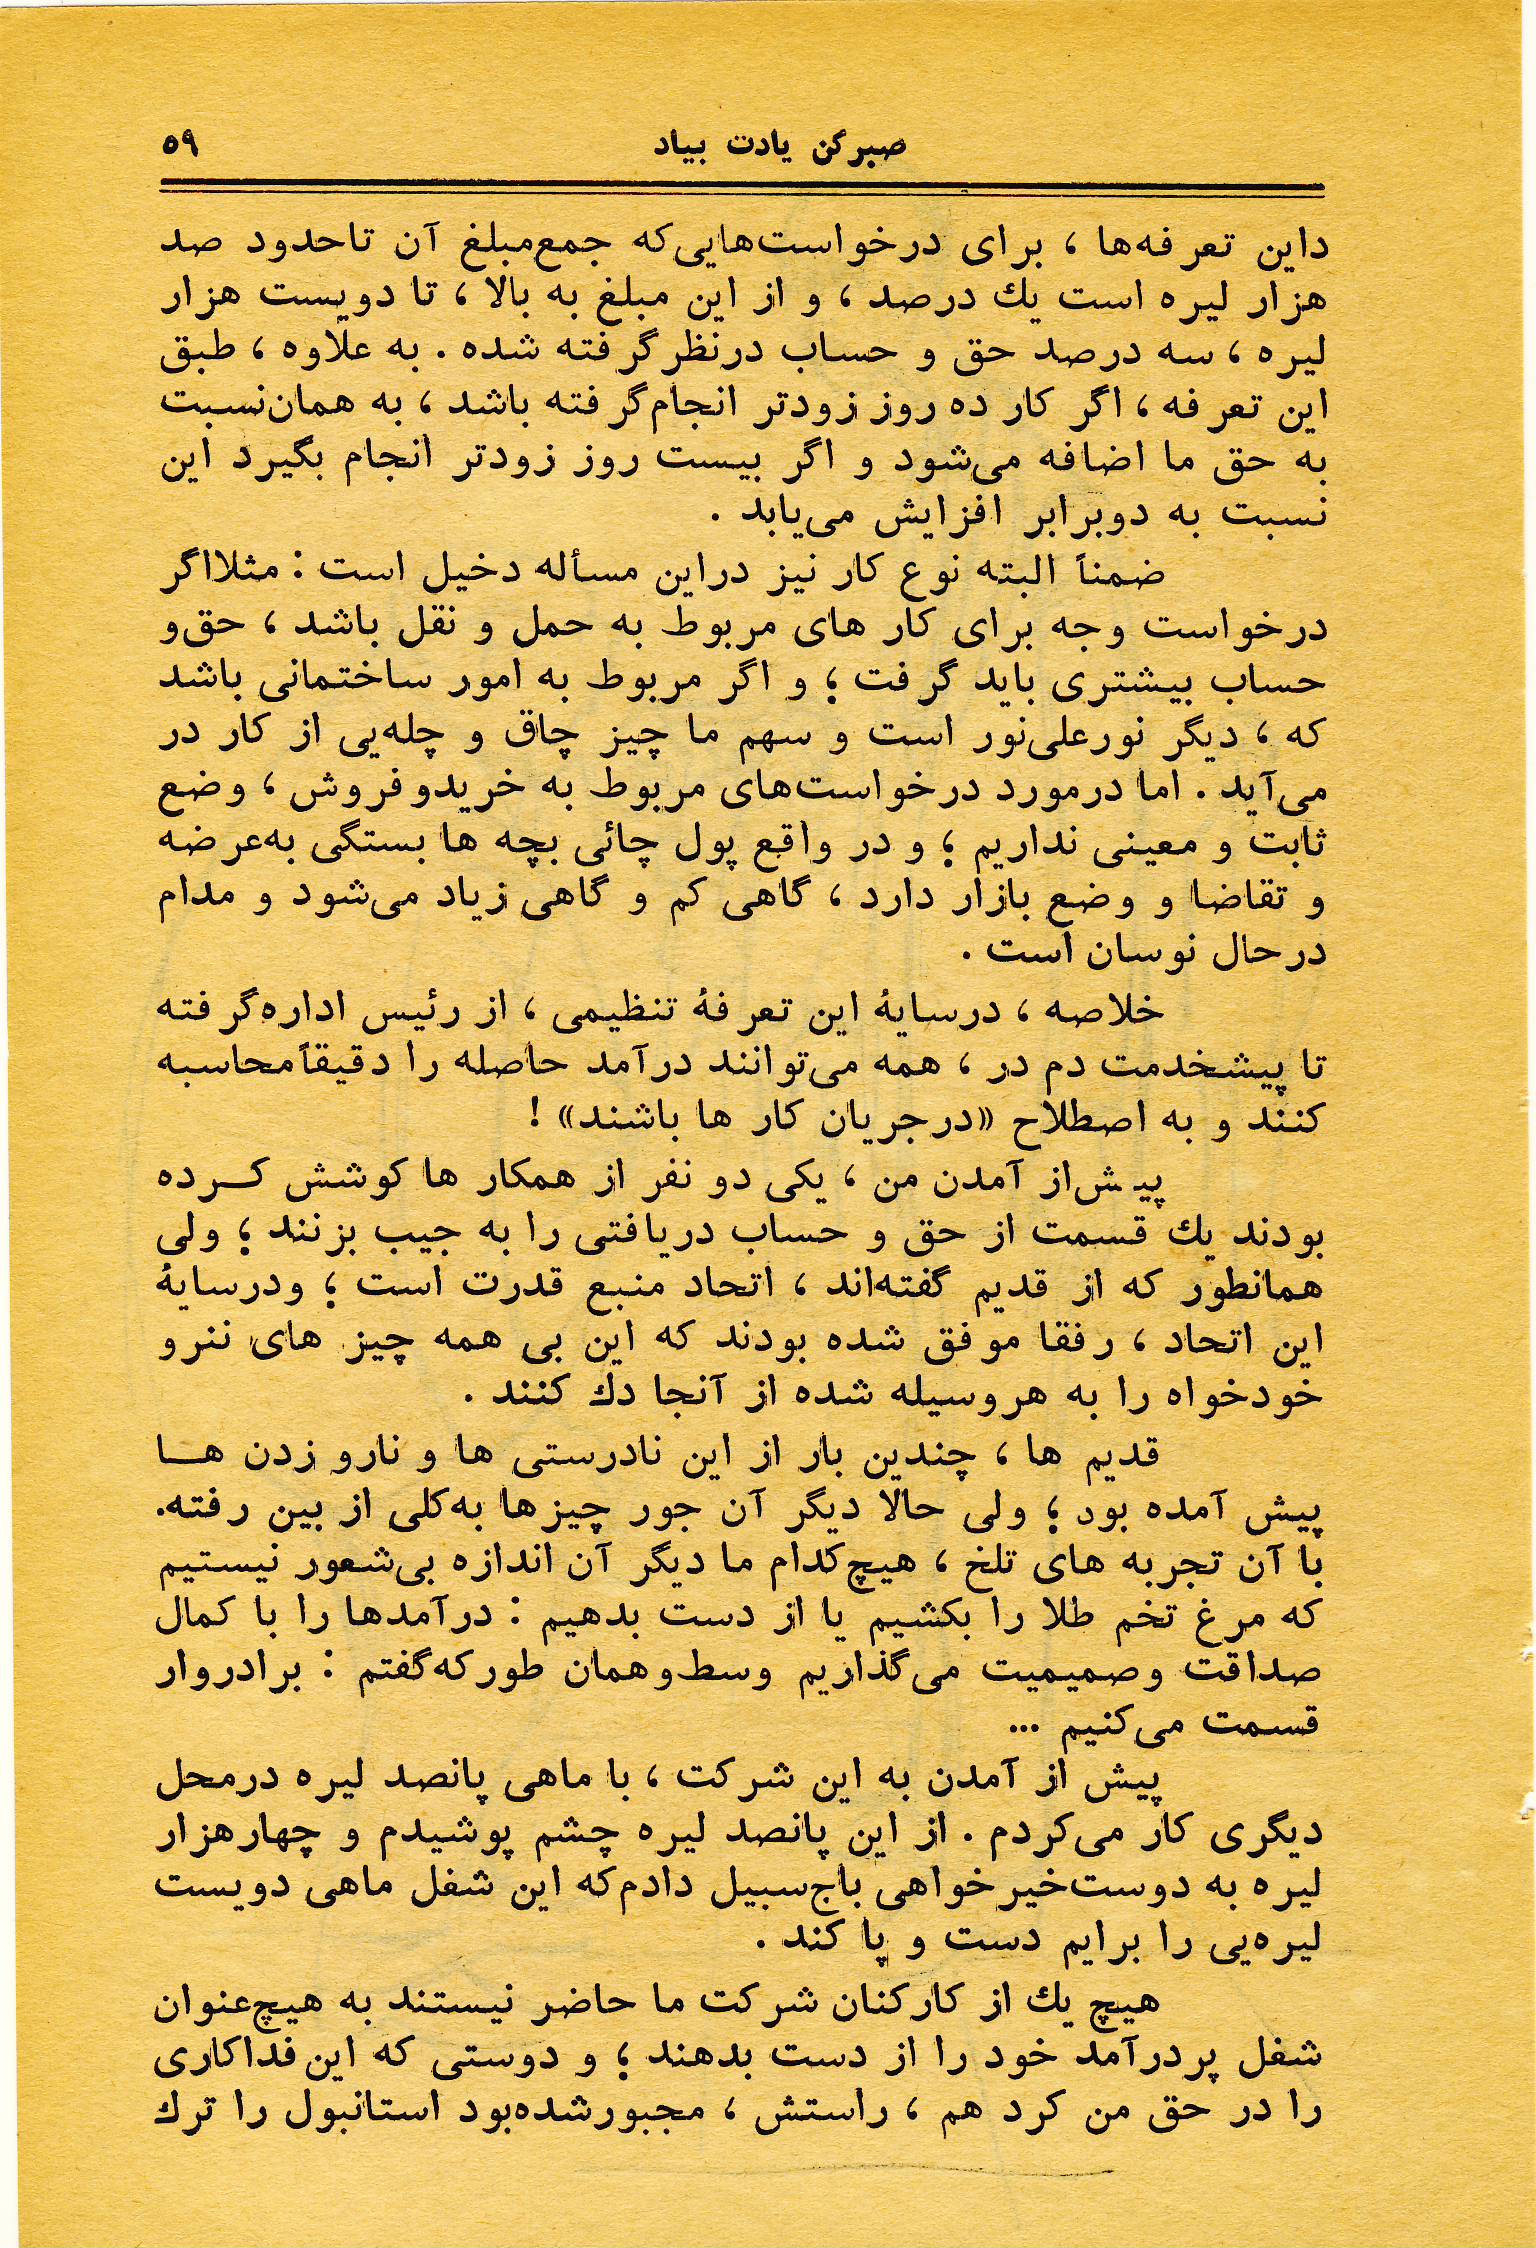 صبرکن یادت بیاد ۵۹
داین تعرفه‌ها ، برای درخواست‌هایی‌که جمع‌مبلغ آن تاحدود صد
هزار لیره است یك درصد ، و از این مبلغ به بالا ، تا دویست هزار
لیره ، سه درصد حق و حساب درنظر گرفته شده . به علاوه ، طبق
این تعرفه ، اگر کار ده روز زودتر انجام‌گرفته باشد ، به همان‌نسبت
به حق ما اضافه می‌شود و اگر بیست روز زودتر انجام بگیرد این
نسبت به دوبرابر افزایش می‌یابد .
ضمناً البته نوع کار نیز دراین مسأله دخیل است : مثلااگر
درخواست وجه برای کار های مربوط به حمل و نقل باشد ، حق‌و
حساب بیشتری باید گرفت ؛ و اگر مربوط به امور ساختمانی باشد
که ، دیگر نورعلی‌نور است و سهم ما چیز چاق و چله‌یی از کار در
می‌آید . اما درمورد درخواست‌های مربوط به خریدوفروش ، وضع
ثابت و معینی نداریم ؛ و در واقع پول چائی بچه ها بستگی به‌عرضه
و تقاضا و وضع بازار دارد ، گاهی کم و گاهی زیاد می‌شود و مدام
درحال نوسان است .
خلاصه ، درسایهٔ این تعرفهٔ تنظیمی ، از رئیس اداره‌گرفته
تا پیشخدمت دم در ، همه می‌توانند درآمد حاصله را دقیقاًمحاسبه
کنند و به اصطلاح «درجریان کار ها باشند» !
پیش‌از آمدن من ، یکی دو نفر از همکار ها کوشش کـرده
بودند یك قسمت از حق و حساب دریافتی را به جیب بزنند ؛ ولی
همانطور که از قدیم گفته‌اند ، اتحاد منبع قدرت است ؛ ودرسایهٔ
این اتحاد ، رفقا موفق شده بودند که این بی همه چیز های ننرو
خودخواه را به هروسیله شده از آنجا دك کنند .
قدیم ها ، چندین بار از این نادرستی ها و نارو زدن هـا
پیش آمده بود ؛ ولی حالا دیگر آن جور چیزها به‌کلی از بین رفته.
با آن تجربه های تلخ ، هیچ‌کدام ما دیگر آن اندازه بی‌شعور نیستیم
که مرغ تخم طلا را بکشیم یا از دست بدهیم : درآمدها را با کمال
صداقت وصمیمیت می‌گذاریم وسط‌وهمان طورکه‌گفتم : برادروار
قسمت می‌کنیم ...
پیش از آمدن به این شرکت ، با ماهی پانصد لیره درمحل
دیگری کار می‌کردم . از این پانصد لیره چشم پوشیدم و چهارهزار
لیره به دوست‌خیرخواهی باج‌سبیل دادم‌که این شغل ماهی دویست
لیره‌یی را برایم دست و پا کند .
هیچ یك از کارکنان شرکت ما حاضر نیستند به هیچ‌عنوان
شغل پردرآمد خود را از دست بدهند ؛ و دوستی که این‌فداکاری
را در حق من کرد هم ، راستش ، مجبورشده‌بود استانبول را ترك